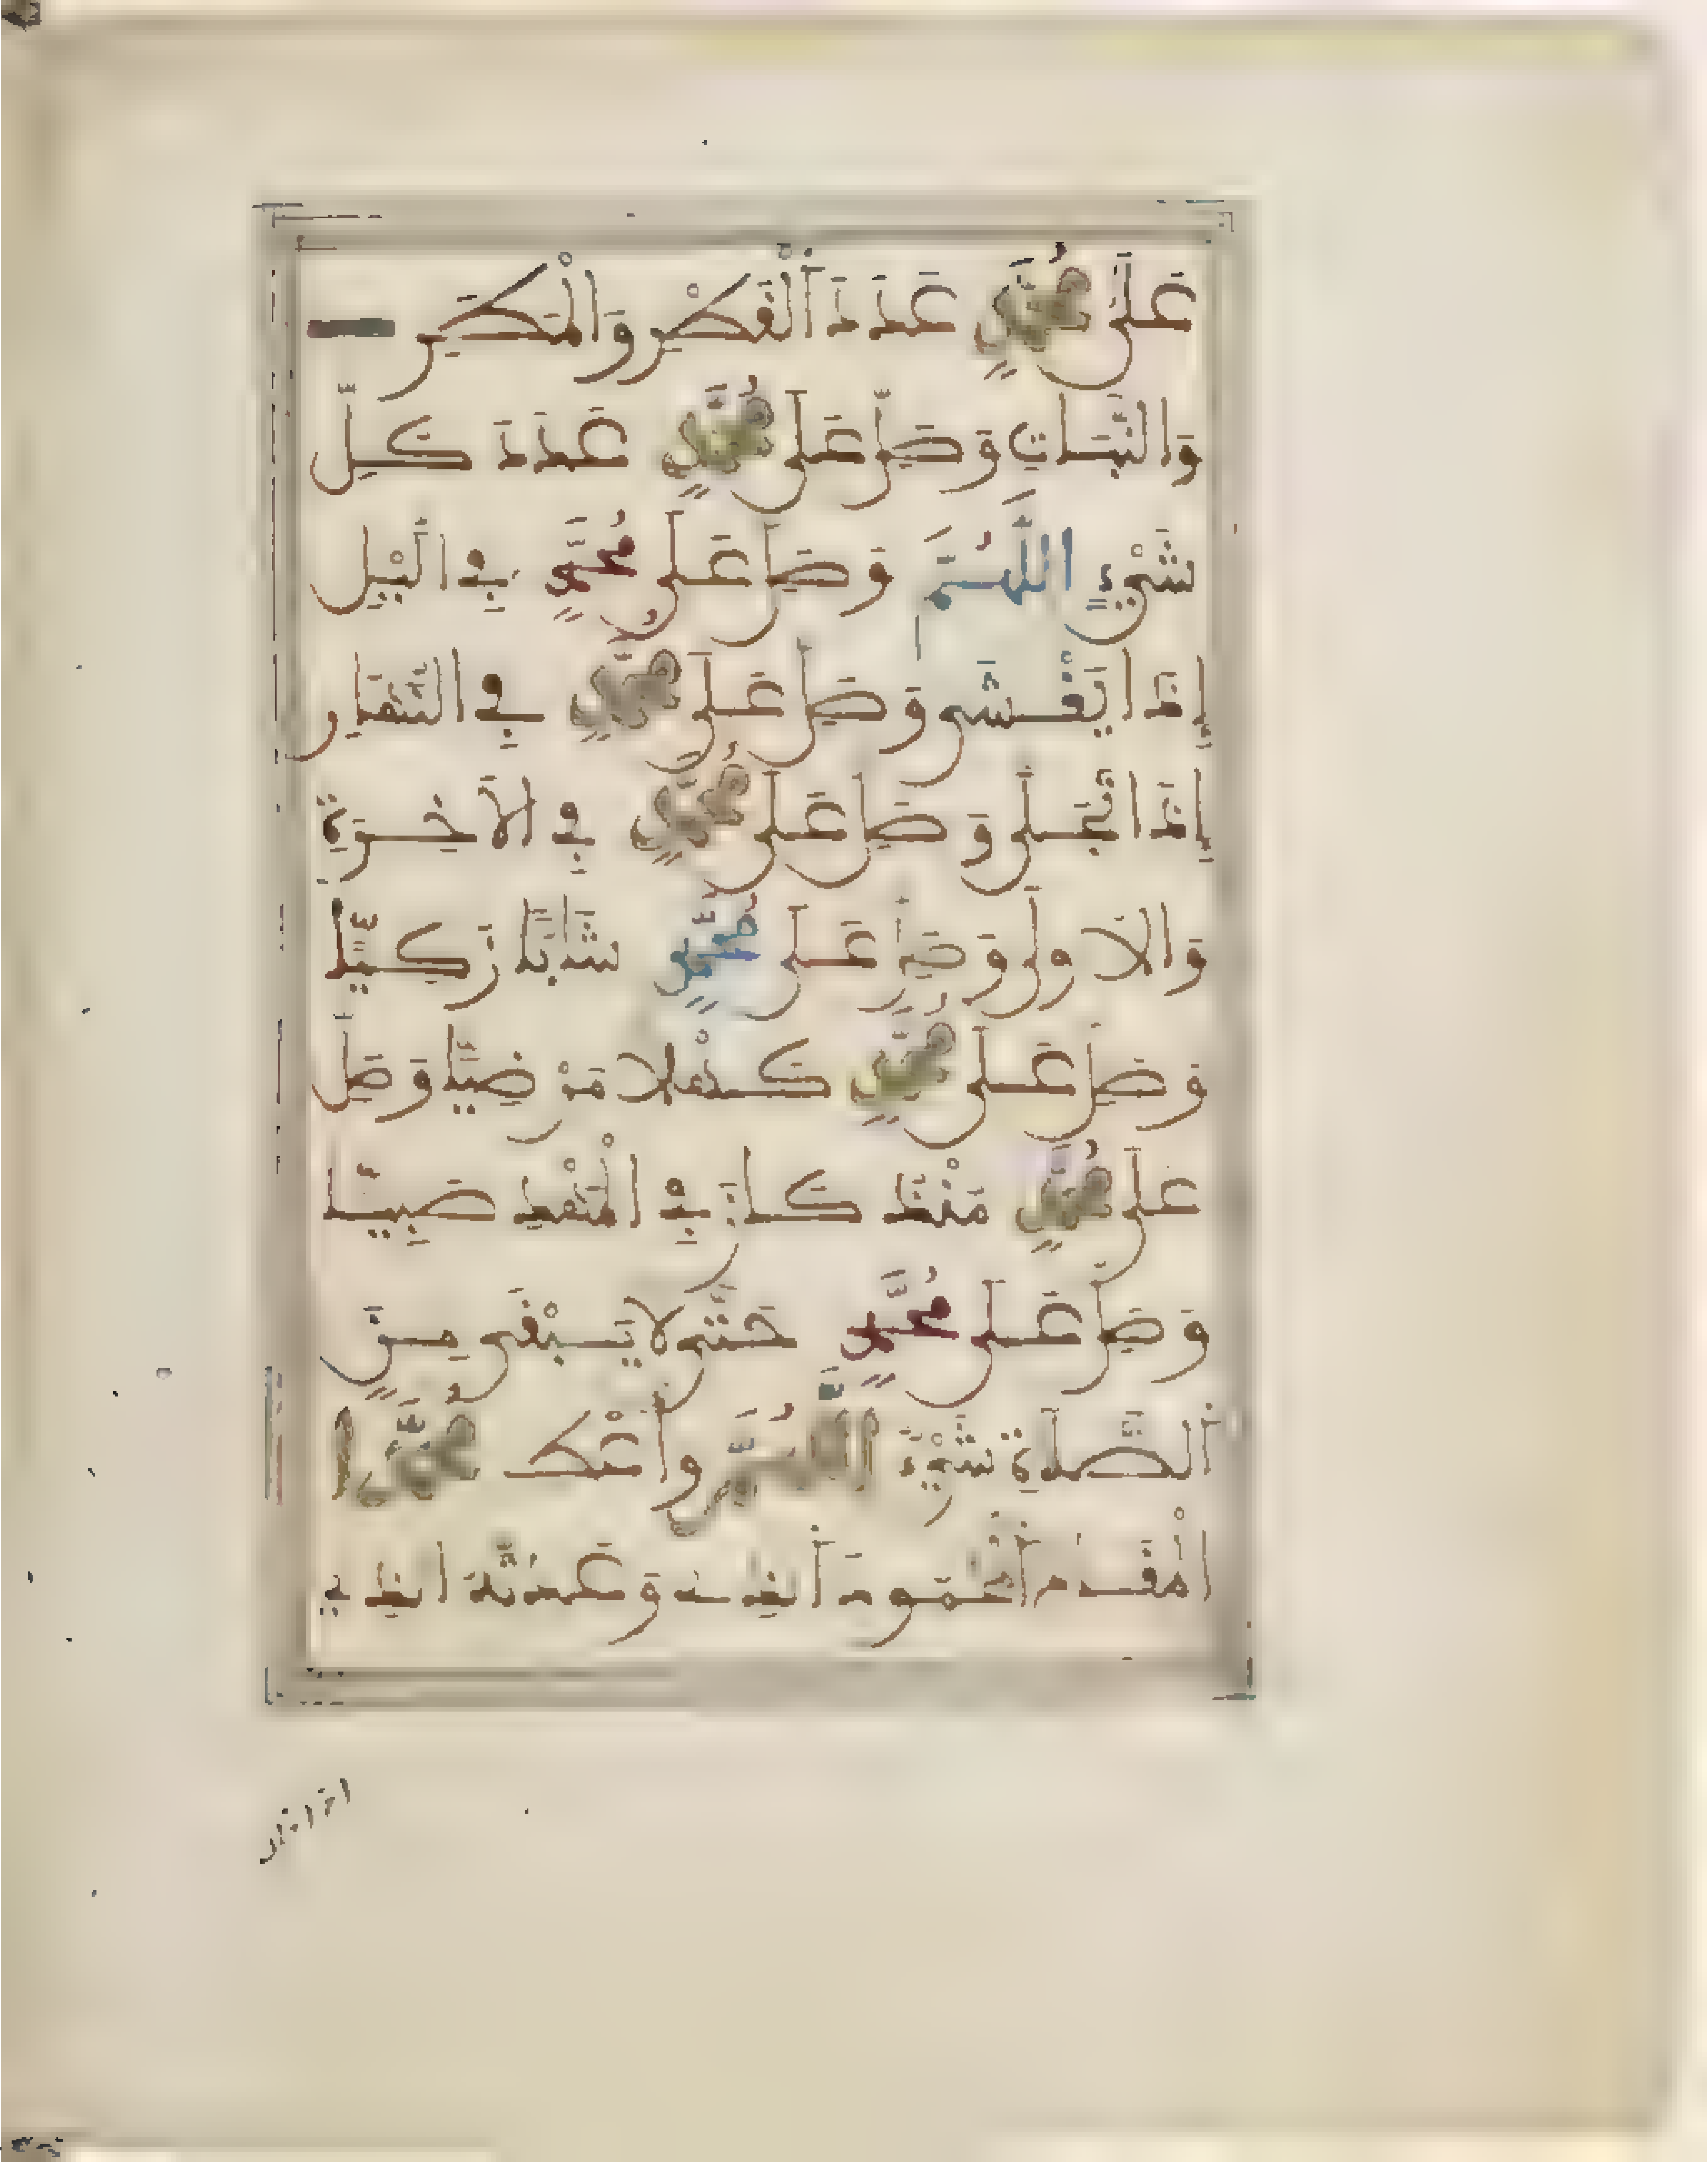 عَلَى مُحَمَّدٍ عَدَدَ الْقَطْرِ وَالْمَطَرِ
وَالنَّبَاتِ وَصَلِّ عَلَى مُحَمَّدٍ عَدَدَ كُلِّ
شَيْءٍ اللَّهُمَّ وَصَلِّ عَلَى مُحَمَّدٍ فِي الَّيْلِ
إِذَا يَغْشَى وَصَلِّ عَلَى مُحَمَّدٍ فِي النَّهَارِ
إِذَا تَجَلَّى وَصَلِّ عَلَى مُحَمَّدٍ فِي الْأَخِرَةِ
وَالْأُولَى وَصَلِّ عَلَى مُحَمَّدٍ شَابًّا زَكِيًّا
وَصَلِّ عَلَى مُحَمَّدٍ كَهْلًا مَرْضِيًّا وَصَلِّ
عَلَى مُحَمَّدٍ مُنْذُ كَانَ فِي الْمَهْدِ صَبِيًّا
وَصَلِّ عَلَى مُحَمَّدٍ حَتَّى لَا يَبْقَى مِنَ
الصَّلَاةِ شَيْءٌ اللَّهُمَّ وَأَعْطِ مُحَمَّدًا
الْمَقَامَ الْمَحْمُودَ الَّذِي وَعَدْتَهُ الَّذِي